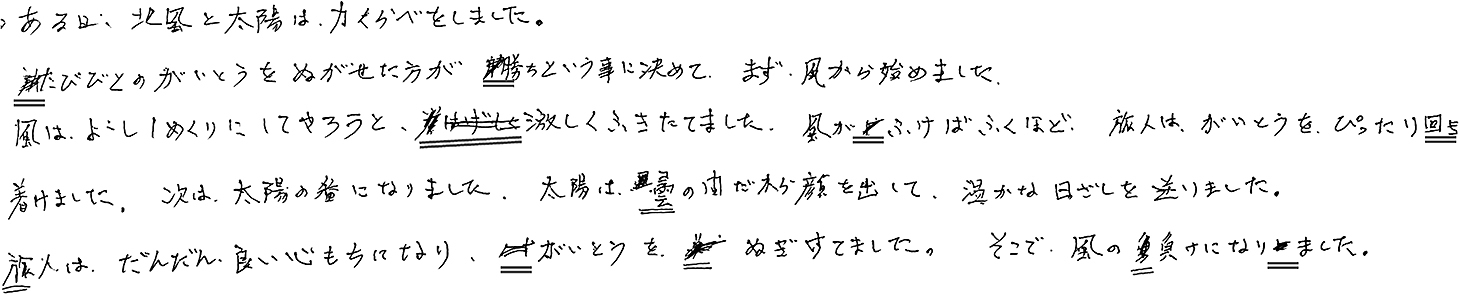 ある日、北風と太陽は、力くらべをしました。
たびびとのがいとうをぬがせた方が勝ちという事に決めて、まず、風から始めました。
風は、よーし1めくりにしてやろうと、激しくふきたてました。風がふけばふくほど、旅人は、がいとうを、ぴったり
着けました。次は、太陽の番になりました。太陽は、曇の間だから顔を出して、温かな日ざしを送りました。
旅人は、だんだん、良い心もちになり、がいとうを、ぬぎすてました。そこで、風の負けになりました。